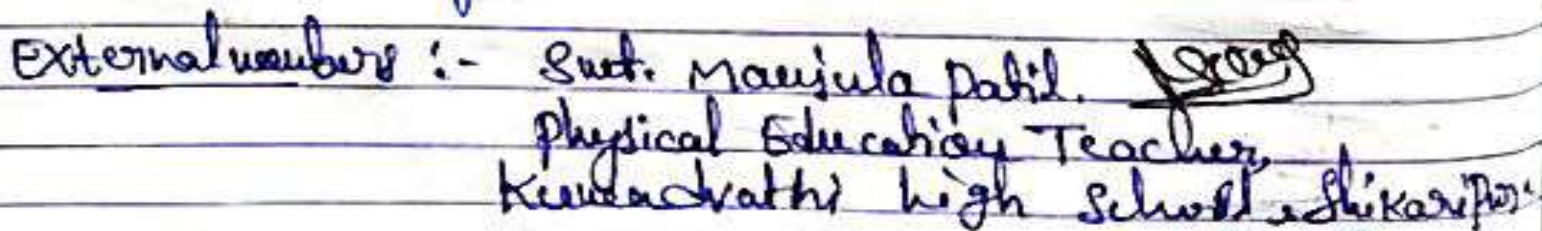 External members :- Smt. Manjula Patil.
Physical Education Teacher,
Kumadvathi high School, Shikaripur.